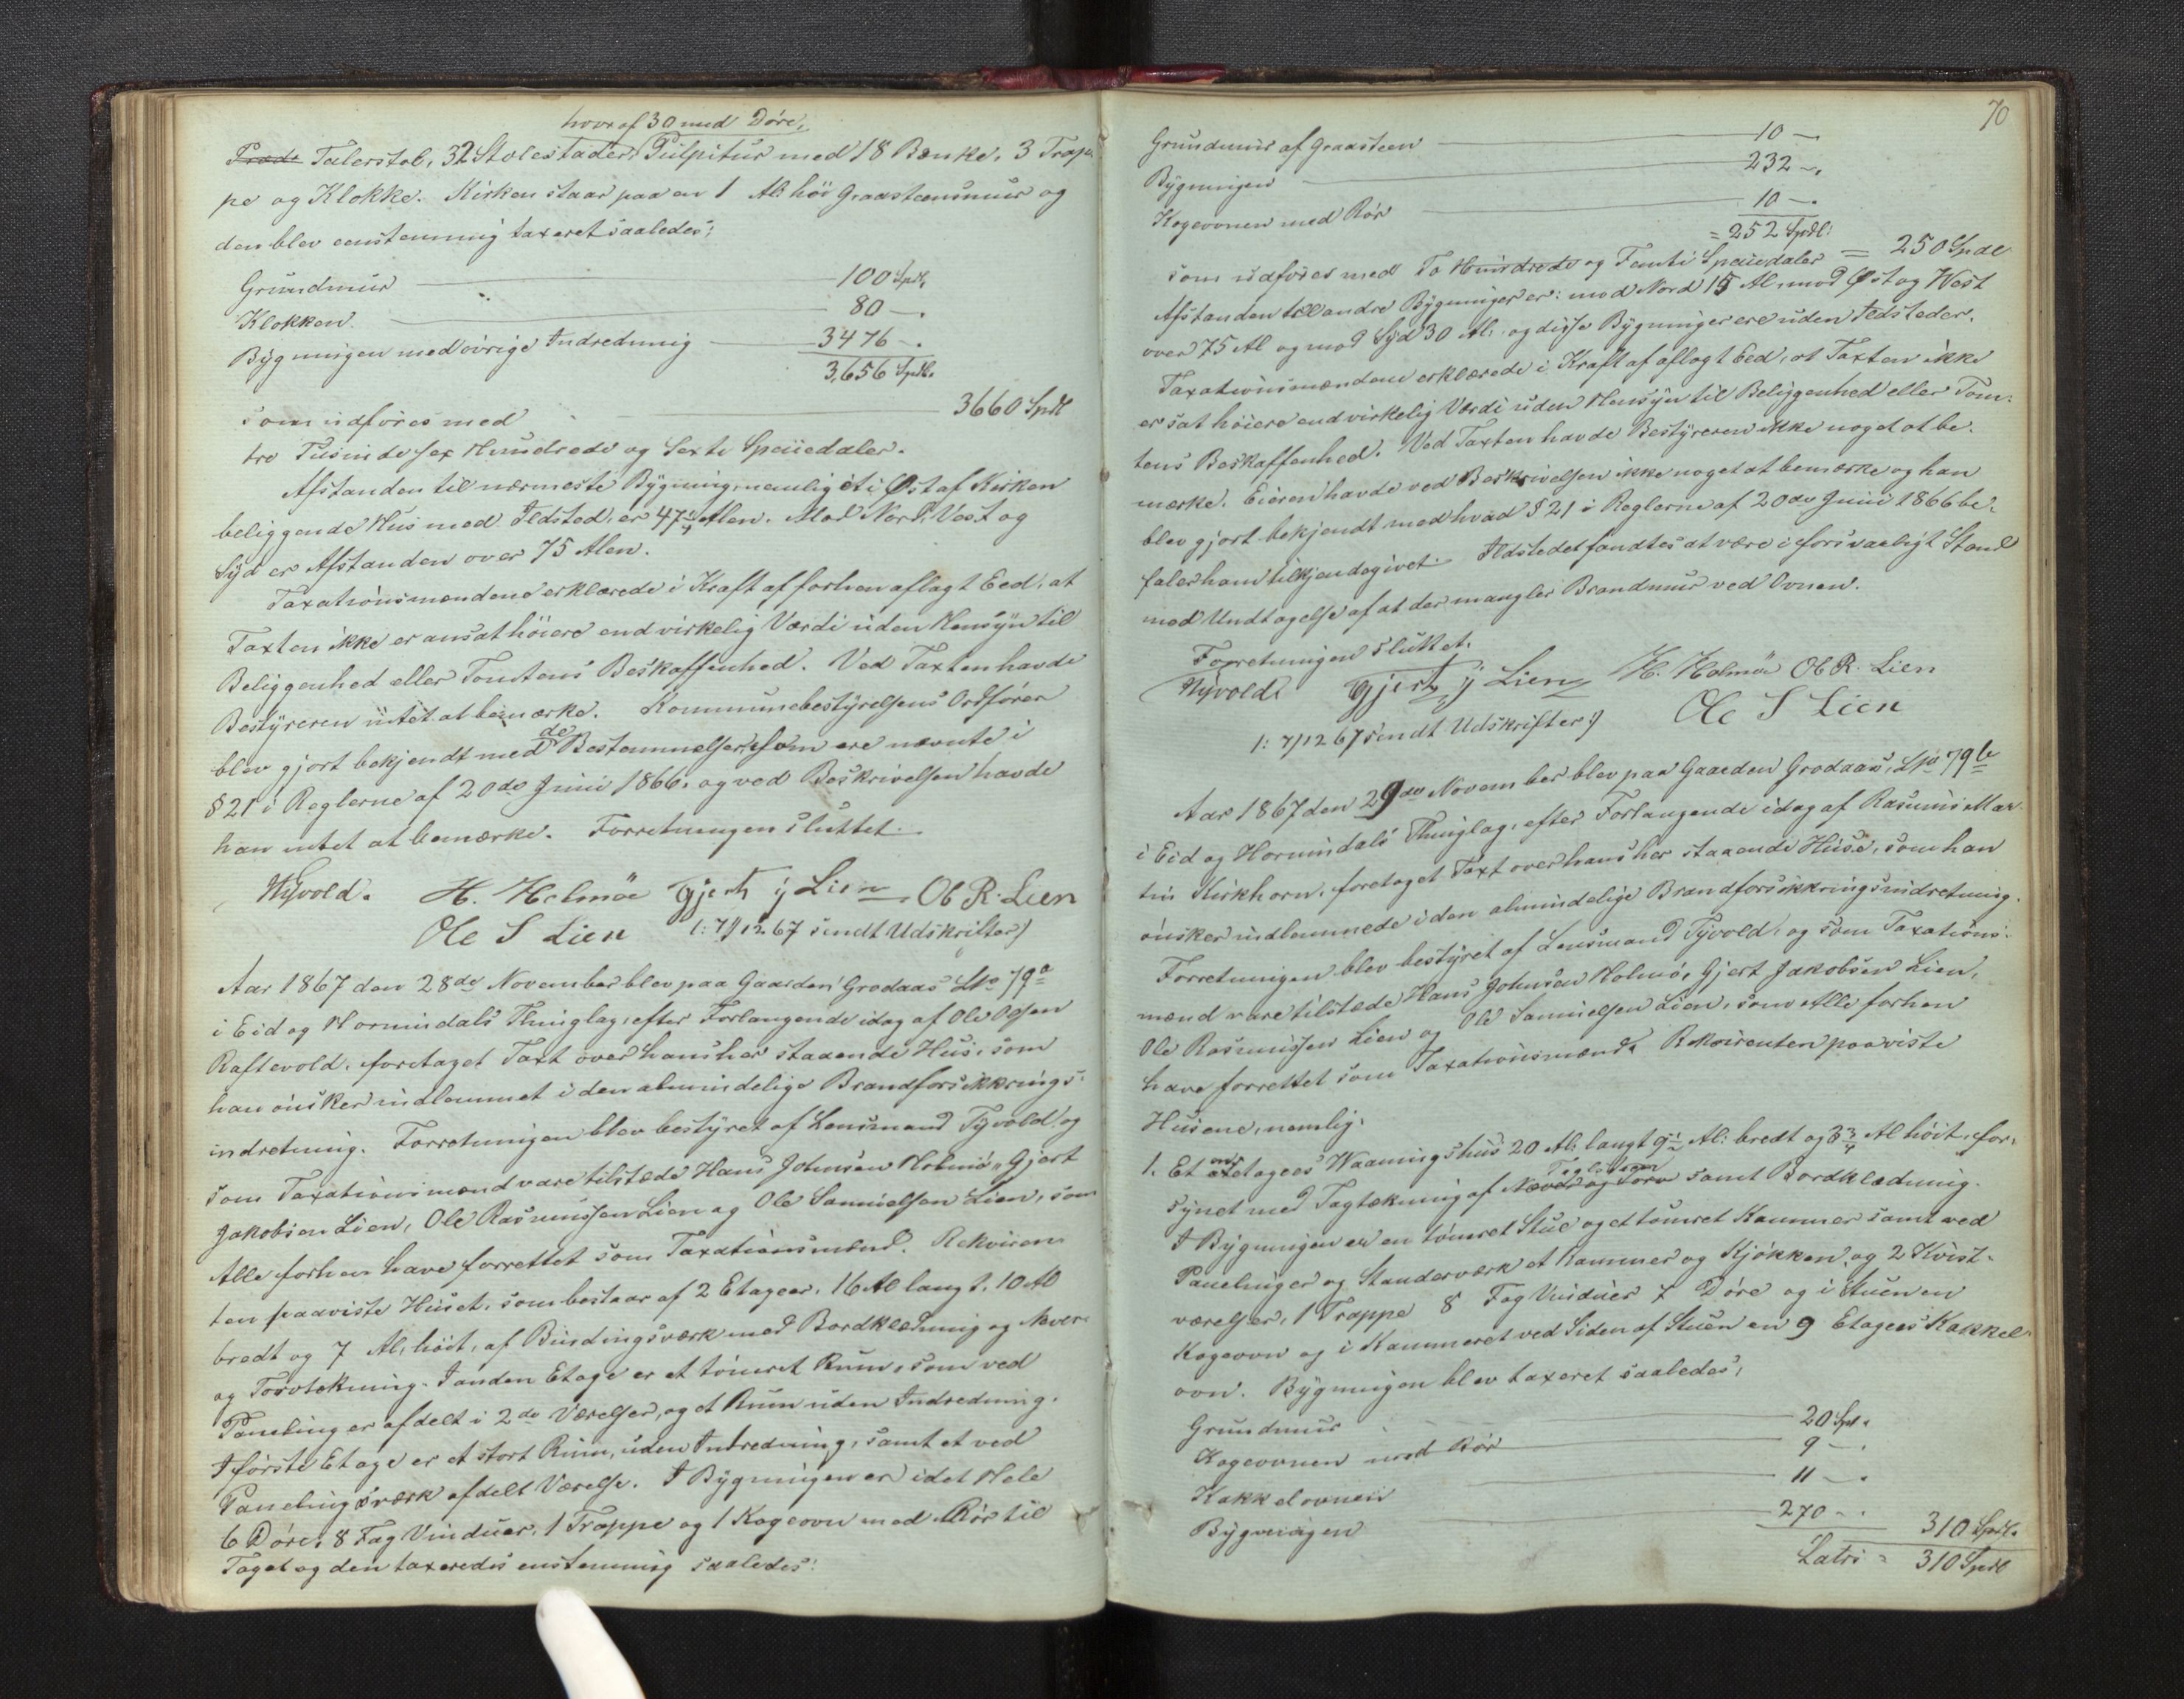 hvoraf 30 med Døre,
Præd. Talerstol, 32 Stolestader, Pulpitur med 18 Bænke, 3 Trap-
pe og Klokke. Kirken staar paa en 1 Al. høi Graasteensmuur og
den blev eenstemmig taxeret saaledes:
Grundmuur 100 Spdl.
Klokken 80 —.
Bygningen med øvrige Indredning 3476 —.
3,656 Spdl.
som udføres med 3660 Spdl
tre Tusinde sex Hundrede og Sexti Speciedaler.
Afstanden til nærmeste Bygning, nemlig et i Øst af Kirken
beliggende Huus med Ildsted, er Alen. Mod Nord, Vest og
Syd er Afstanden over 75 Alen.
Taxationsmændene erklærede i Kraft af forhen aflagt Eed, at
Taxten ikke er ansat høiere end virkelig Værdi uden Hensyn til
Beliggenhed eller Tomtens Beskaffenhed. Ved Taxten havde
Bestyreren intet at bemærke. Kommunebestyrelsens Ordfører
blev gjort bekjendt med de Bestemmelser, som ere nævnte i
§ 21 i Reglerne af 20de Juni 1866, og ved Beskrivelsen havde
han intet at bemærke. Forretningen sluttet.
Tyvold. H. Holmøe Gjert J Lien Ol R. Lien
Ole S Lien (: 7/12 67 sendt Udskrifter)
Aar 1867 den 28de November blev paa Gaarden Grodaas Lno 79a
i Eid og Hornindals Thinglag, efter Forlangende idag af Ole Olsen
Raftevold, foretaget Taxt over hans her staaende Hus, som
han ønsker indlemmet i den almindelige Brandforsikkrings-
indretning. Forretningen blev bestyret af Lensmand Tyvold, og
som Taxationsmænd vare tilstæde Hans Johnsen Holmø, Gjert
Jakobsen Lien, Ole Rasmussen Lien og Ole Samuelsen Lien, som
Alle forhen have forrettet som Taxationsmænd. Rekviren-
ten paaviste Huset, som bestaar af 2 Etager, 16 Al langt, 10 Al
bredt og 7 Al, høit, af Bindingsværk med Bordklædning og Næver-
og Torvtekning. I anden Etage er et tømret Rum, som ved
Paneling er afdelt i 2de Værelser, og et Rum uden Indredning.
I første Etage er et stort Rum, uden Indredning, samt et ved
Panelingsværk afdelt Værelse. I Bygningen er i det Hele
6 Døre, 8 Fag Vinduer, 1 Trappe og 1 Kogeovn med Rør til
Taget og den taxeredes enstemmig saaledes:
70
Grundmuur af Graasteen 10 —
Bygningen 232 —.
Kogeovnen med Rør 10 —.
= 252 Spdl:
som udføres med To Hundrede og Femti Speciedaler = 250 Spdl
Afstanden till andre Bygninger er: mod Nord 15 Al, mod Øst og Vest
over 75 Al og mod Syd 30 Al. og disse Bygninger ere uden Ildsteder.
Taxationsmændene erklærede i Kraft af aflagt Eed, at Taxten ikke
er sat høiere end virkelig Værdi uden Hensyn til Beliggenhed eller Tom-
tens Beskaffenhed. Ved Taxten havde Bestyreren ikke noget at be-
mærke. Eieren havde ved Beskrivelsen ikke noget at bemærke og han
blev gjort bekjendt med hvad § 21 i Reglerne af 20de Juni 1866 be-
faler ham tilkjendegivet. Ildstedet fandtes at være i forsvarligt Stand
med Undtagelse af at der mangler Brandmuur ved Ovnen.
Forretningen sluttet.
Tyvold Gjert J Lien H. Holmøe Ol R. Lien
(: 7/12 67 sendt Udskrifter:) Ole S Lien
Aar 1867 den 29de November blev paa Gaarden Grodaas, Lno 79b
i Eid og Hornindals Thinglag, efter Forlangende idag af Rasmus Mar-
tin Kirkhorn, foretaget Taxt over hans her staaende Huse, som han
ønsker indlemmede i den almindelige Brandforsikkringsindretning.
Forretningen blev bestyret af Lensmand Tyvold, og som Taxations-
mænd vare tilstæde Hans Johnsen Holmø, Gjert Jakobsen Lien,
Ole Rasmussen Lien og Ole Samuelsen Lien, som Alle forhen
have forrettet som Taxationsmænd. Rekvirenten paaviste
Husene, nemlig:
1. Et etages Vaaningshus 20 Al. langt 9½ Al: bredt og 3¾ Al høit, for-
Teglsteen
synet med Tagtækning af Næver og Torv samt Bordklædning.
I Bygningen er en tømret Stue og et tømret Kammer samt ved
Panelinger og Standerværk et Kammer og Kjøkken, og 2 Kvist-
værelser, 1 Trappe 8 Fag Vinduer 7 Døre og i Stuen en
Kogeovn og i Kammeret ved Siden af Stuen en 9 Etages Kakkel-
ovn. Bygningen blev taxeret saaledes:
Grundmuur 20 Spd.
Kogeovnen med Rør 9 —.
Kakkelovnen 11 —.
Bygningen 270 —. 310 Spdl.
Latus = 310 Spdl